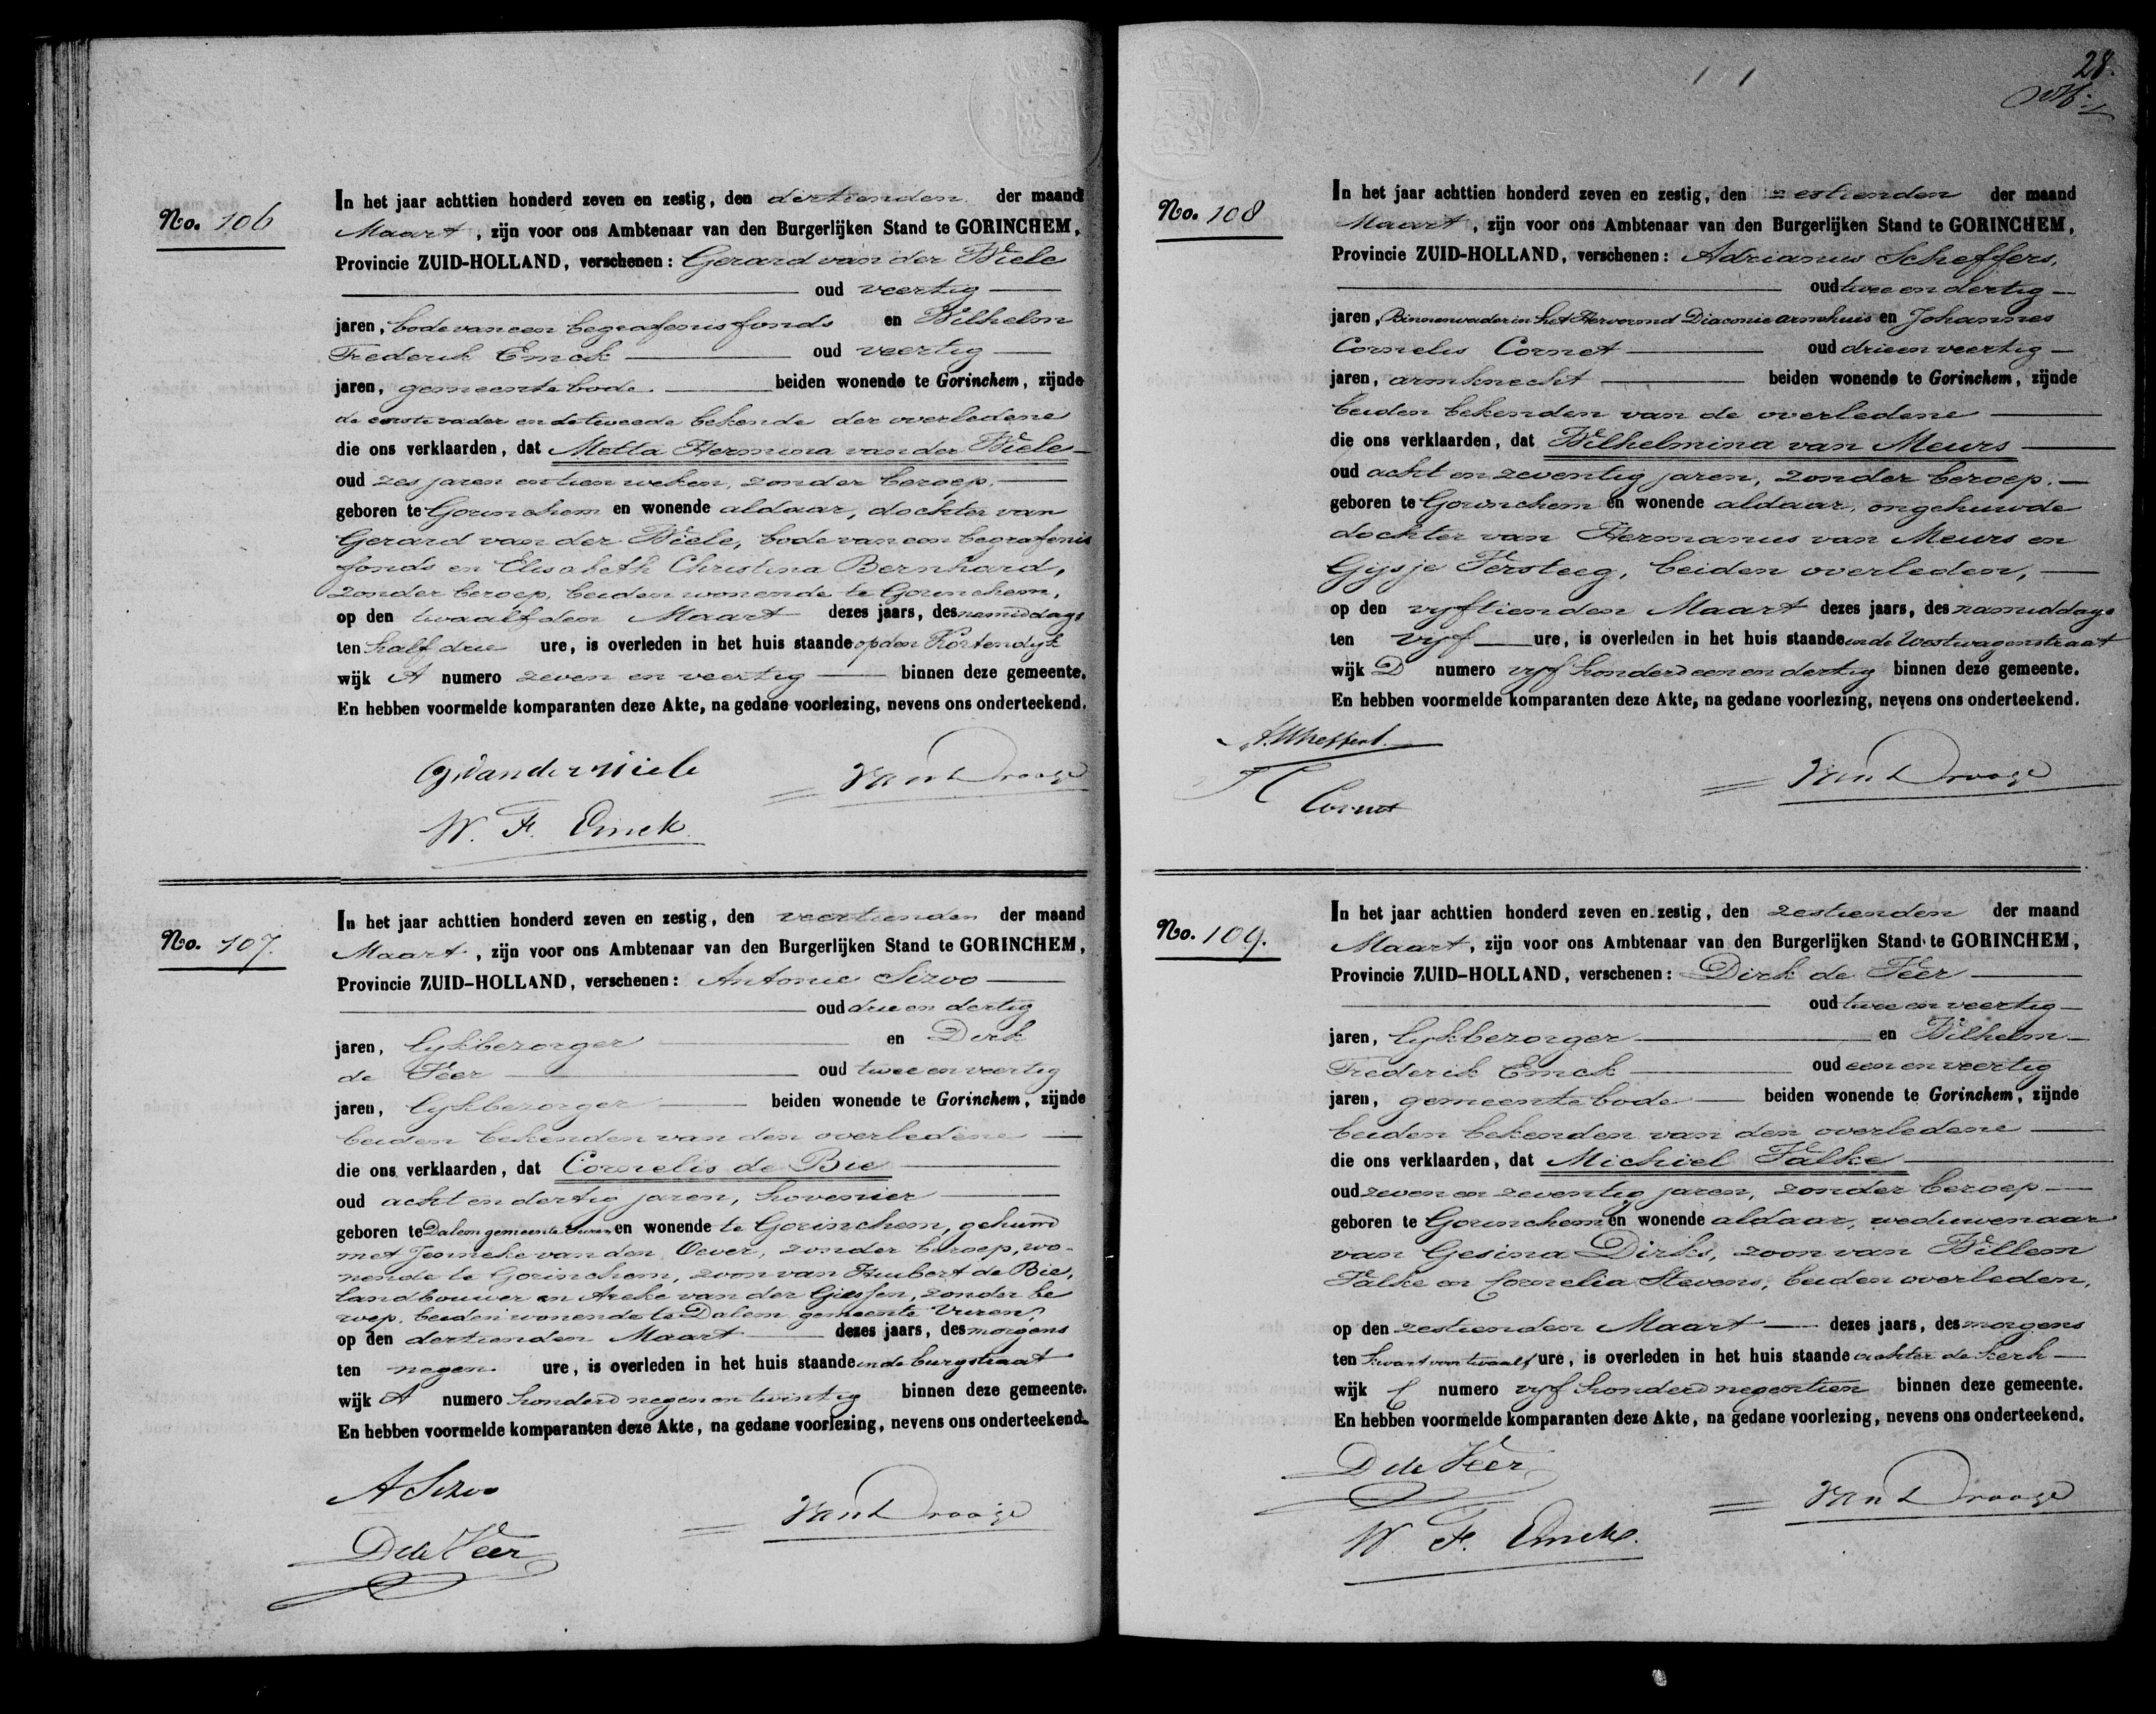 No. 106
In het jaar achttien honderd zeven en zestig, den dertienden der maand
Maart, zijn voor ons Ambtenaar van den Burgerlijken Stand te GORINCHEM,
Provincie ZUID-HOLLAND, verschenen: Gerard van der Wiele
oud veertig
jaren, bode van een begrafenis fonds en Wilhelm
Frederik Emck oud veertig
jaren, gemeente bode beiden wonende te Gorinchem, zijnde
de eerste vader en de tweede bekende der overledene
die ons verklaarden, dat Metta Hermina van der Wiele
oud zes jaren en tien weken, zonder beroep,
geboren te Gorinchem en wonende aldaar, dochter van
Gerard van der Wiele, bode van een begrafenis
fonds en Elisabeth Christina Bernhard,
zonder beroep, beiden wonende te Gorinchem,
op den twaalfden Maart dezes jaars, des namiddags
ten half drie ure, is overleden in het huis staande op den Kortendijk
wijk A numero zeven en veertig binnen deze gemeente.
En hebben voormelde komparanten deze Akte, na gedane voorlezing, nevens ons onderteekend.
G vander Wiele
W. F. Emck
No. 107.
In het jaar achttien honderd zeven en zestig, den veertienden der maand
Maart, zijn voor ons Ambtenaar van den Burgerlijken Stand te GORINCHEM,
Provincie ZUID-HOLLAND, verschenen: Antonie Sizoo
oud drie en dertig
jaren, lykbezorger en Dirk
de Veer oud twee en veertig
jaren, lykbezorger beiden wonende te Gorinchem, zijnde
beiden bekenden van den overledene
die ons verklaarden, dat Cornelis de Bie
oud acht en dertig jaren, hovenier
geboren te Dalem gemeente Vuren en wonende te Gorinchem, gehuwd
met Jenneke van den Oever, zonder beroep, wo-
nende te Gorinchem, zoon van Huibert de Bie,
landbouwer en Areke van der Giessen, zonder be
roep, beiden wonende te Dalem gemeente Vuren,
op den dertienden Maart dezes jaars, des morgens
ten negen ure, is overleden in het huis staande in de burgstraat
wijk A numero honderd negen en twintig binnen deze gemeente.
En hebben voormelde komparanten deze Akte, na gedane voorlezing, nevens ons onderteekend.
A Sizoo
D de Veer
28.
No. 108
In het jaar achttien honderd zeven en zestig, den zestienden der maand
Maart, zijn voor ons Ambtenaar van den Burgerlijken Stand te GORINCHEM,
Provincie ZUID-HOLLAND, verschenen: Adrianus Scheffers,
oud twee en dertig
jaren, Binnenvader in het Hervormd Diaconie armhuis en Johannes
Cornelis Cornet oud drie en veertig
jaren, armknecht beiden wonende te Gorinchem, zijnde
beiden bekenden van de overledene
die ons verklaarden, dat Wilhelmina van Meurs
oud acht en zeventig jaren, zonder beroep.
geboren te Gorinchem en wonende aldaar, ongehuwde
dochter van Hermanus van Meurs en
Gijsje Versteeg, beiden overleden,
op den vyftienden Maart dezes jaars, des namiddags
ten vyf ure, is overleden in het huis staande in de Westwagenstraat
wijk D numero vyf honderd een en dertig binnen deze gemeente.
En hebben voormelde komparanten deze Akte, na gedane voorlezing, nevens ons onderteekend.
Cornet
No. 109.
In het jaar achttien honderd zeven en zestig, den zestienden der maand
Maart, zijn voor ons Ambtenaar van den Burgerlijken Stand te GORINCHEM,
Provincie ZUID-HOLLAND, verschenen: Dirk de Veer
oud twee en veertig
jaren, lykbezorger en Wilhelm
Frederik Emck oud een en veertig
jaren, gemeente bode beiden wonende te Gorinchem, zijnde
beiden bekenden van den overledene
die ons verklaarden, dat Michiel Valke
oud zeven en zeventig jaren, zonder beroep
geboren te Gorinchem en wonende aldaar, weduwenaar
van Gesina Dirks, zoon van Willem
Valke en Cornelia Stevens, beiden overleden,
op den zestienden Maart dezes jaars, des morgens
ten kwart voor twaalf ure, is overleden in het huis staande achter de kerk
wijk C numero vyf honderd negentien binnen deze gemeente.
En hebben voormelde komparanten deze Akte, na gedane voorlezing, nevens ons onderteekend.
D de Veer
W. F. Emck.